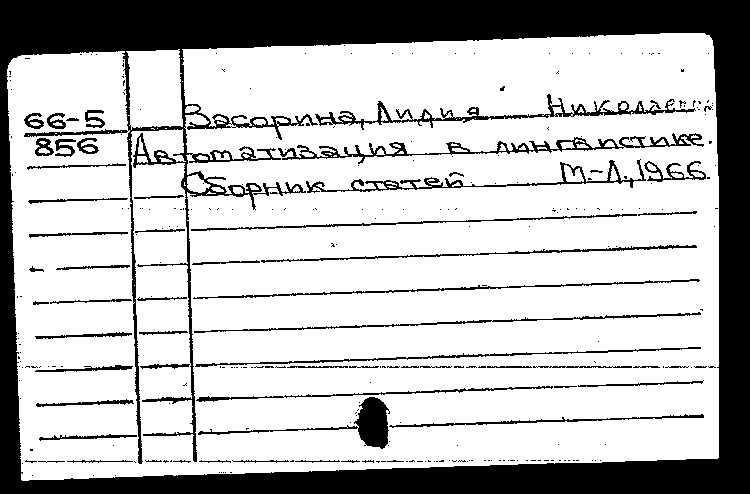 66-5
856
Засорина, Лидия Николаевна
Автоматизация в лингвистике.
Сборник статей. М.-Л., 1966